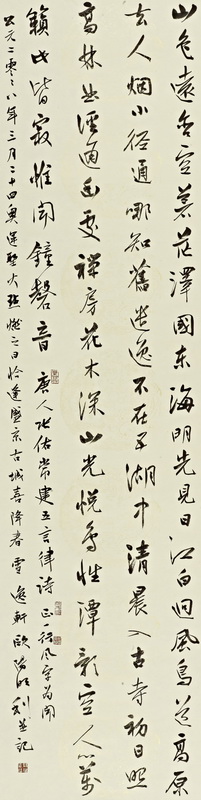 山色遠含空蒼茫澤國东海明先見日江白迥風鳥道高原
去人烟小徑通哪知舊遺逸不在五湖中清晨入古寺初日照
高林曲徑通幽處禪房花木深山光悅鳥性潭影空人心萬
籟此皆寂惟聞鐘磬音 唐人张佑常建五言律诗 一行风字前闻
公元二零零八年三月二十四奥運聖火點燃之日恰逢盛京古城喜降春雪逸軒歐陽利並記